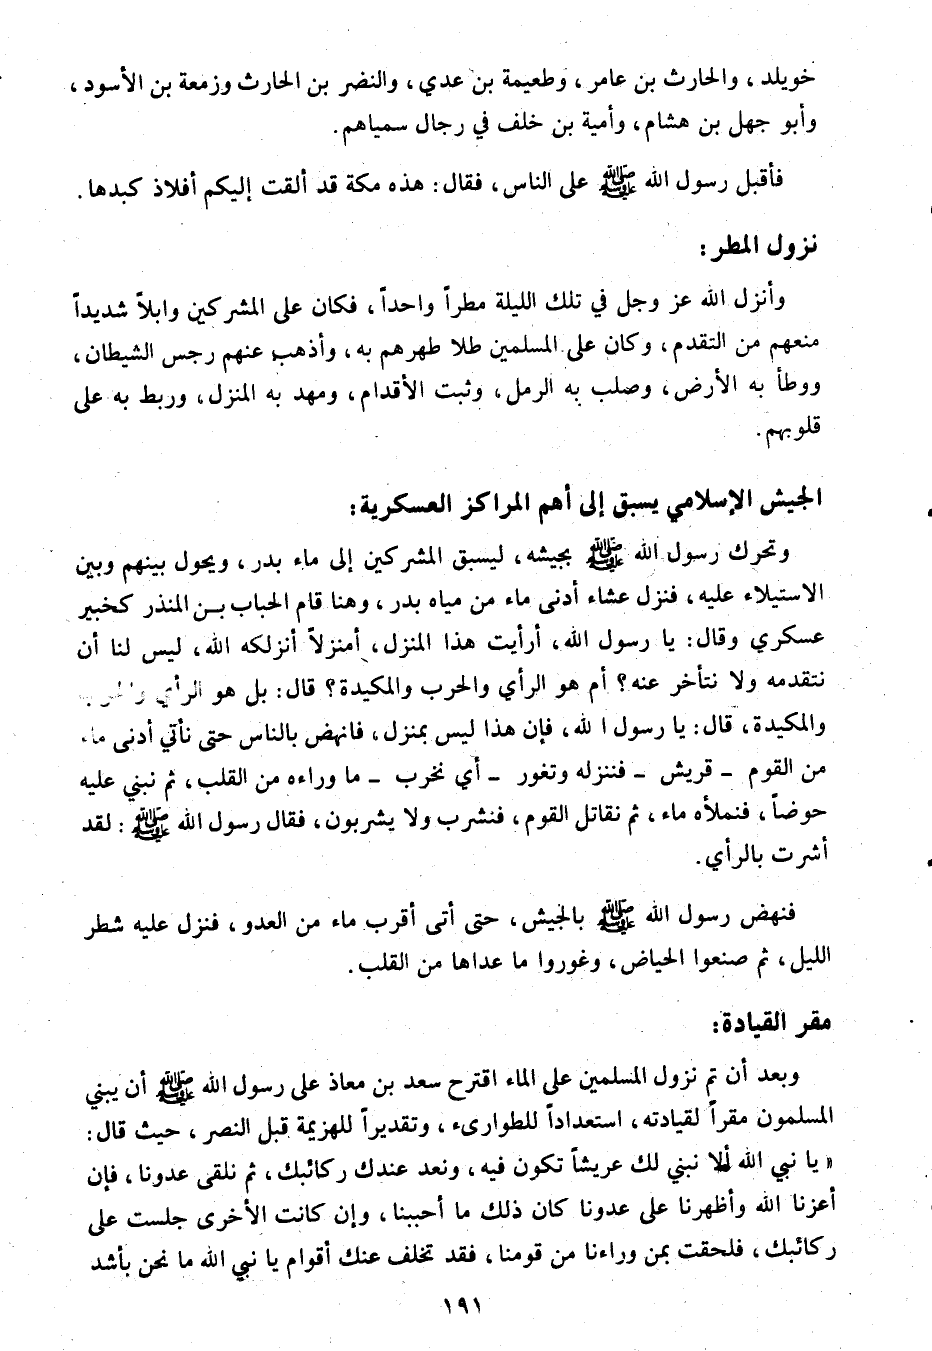 خويلد ، والحارث بن عامر ، وطعيمة بن عدي ، والنضر بن الحارث وزمعة بن الأسود ،
وأبو جهل بن هشام ، وأمية بن خلف في رجال سمياهم .
فأقبل رسول الله ﷺ على الناس ، فقال : هذه مكة قد ألقت إليكم أفلاذ كبدها .
نزول المطر :
وأنزل الله عز وجل في تلك الليلة مطراً واحداً ، فكان على المشركين وابلاً شديداً
منعهم من التقدم ، وكان على المسلمين طلا طهرهم به ، وأذهب عنهم رجس الشيطان ،
ووطأ به الأرض ، وصلب به الرمل ، وثبت الأقدام ، ومهد به المنزل ، وربط به على
قلوبهم .
الجيش الإسلامي يسبق إلى أهم المراكز العسكرية :
وتحرك رسول الله ﷺ بجيشه ، ليسبق المشركين إلى ماء بدر ، ويحول بينهم وبين
الاستيلاء عليه ، فنزل عشاء أدنى ماء من مياه بدر ، وهنا قام الحباب بن المنذر كخبير
عسكري وقال : يا رسول الله ، أرأيت هذا المنزل ، أمنزلاً أنزلكه الله ، ليس لنا أن
نتقدمه ولا نتأخر عنه ؟ أم هو الرأي والحرب والمكيدة ؟ قال : بل هو الرأي والحرب
والمكيدة ، قال : يا رسول ا لله ، فإن هذا ليس بمنزل ، فانهض بالناس حتى نأتي أدنى ماء
من القوم - قريش - فننزله وتغور - أي نخرب - ما وراءه من القلب ، ثم نبني عليه
حوضاً ، فنملأه ماء ، ثم نقاتل القوم ، فنشرب ولا يشربون ، فقال رسول الله ﷺ : لقد
أشرت بالرأي .
فنهض رسول الله ﷺ بالجيش ، حتى أتى أقرب ماء من العدو ، فنزل عليه شطر
الليل ، ثم صنعوا الحياض ، وغوروا ما عداها من القلب .
مقر القيادة :
وبعد أن تم نزول المسلمين على الماء اقترح سعد بن معاذ على رسول الله ﷺ أن يبني
المسلمون مقراً لقيادته ، استعداداً للطوارىء ، وتقديراً للهزيمة قبل النصر ، حيث قال :
« يا نبي الله ألا نبني لك عريشاً تكون فيه ، ونعد عندك ركائبك ، ثم نلقى عدونا ، فإن
أعزنا الله وأظهرنا على عدونا كان ذلك ما أحببنا ، وإن كانت الأخرى جلست على
ركائبك ، فلحقت بمن وراءنا من قومنا ، فقد تخلف عنك أقوام يا نبي الله ما نحن بأشد
١٩١